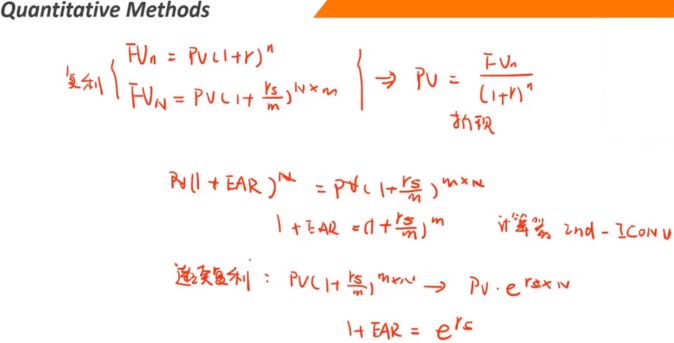 Quantitative Methods
复利 { FVn = PV(1+r)^n
FV_N = PV(1+rs/m)^N×m } ⇒ PV = FVn/(1+r)^n
折现
PV(1+EAR)^N = PV(1+rs/m)^m×N
1+EAR = (1+rs/m)^m 计算器 2nd - ICONV
连续复利: PV(1+rs/m)^m×N → PV·e^rs×N
1+EAR = e^rs